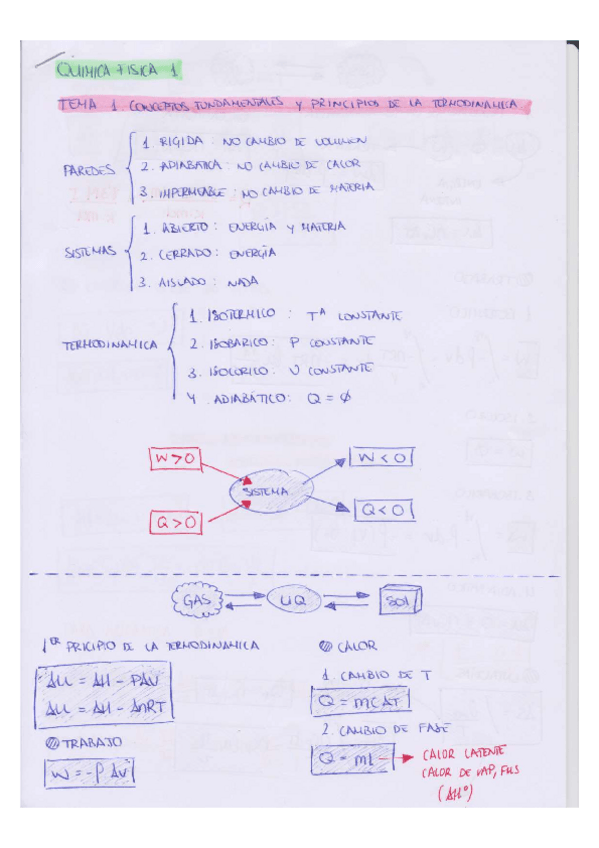 QUIMICA FISICA 1
TEMA 1. CONCEPTOS FUNDAMENTALES Y PRINCIPIOS DE LA TERMODINAMICA
PAREDES
1. RIGIDA : NO CAMBIO DE VOLUMEN
2. ADIABATICA : NO CAMBIO DE CALOR
3. IMPERMEABLE : NO CAMBIO DE MATERIA
SISTEMAS
1. ABIERTO : ENERGÍA Y MATERIA
2. CERRADO : ENERGÍA
3. AISLADO : NADA
TERMODINAMICA
1. ISOTERMICO : Tª CONSTANTE
2. ISOBARICO : P CONSTANTE
3. ISOCORICO : V CONSTANTE
4. ADIABÁTICO : Q = Ø
W>0
W<0
SISTEMA
Q>0
Q<0
GAS
LIQ
SOL
1er PRICIPIO DE LA TERMODINAMICA
ΔU = ΔH - PΔV
ΔU = ΔH - ΔnRT
TRABAJO
W = -P ΔV
CALOR
1. CAMBIO DE T
Q = mCΔT
2. CAMBIO DE FASE
Q = mL
CALOR LATENTE
CALOR DE VAP, FUS
(ΔHº)